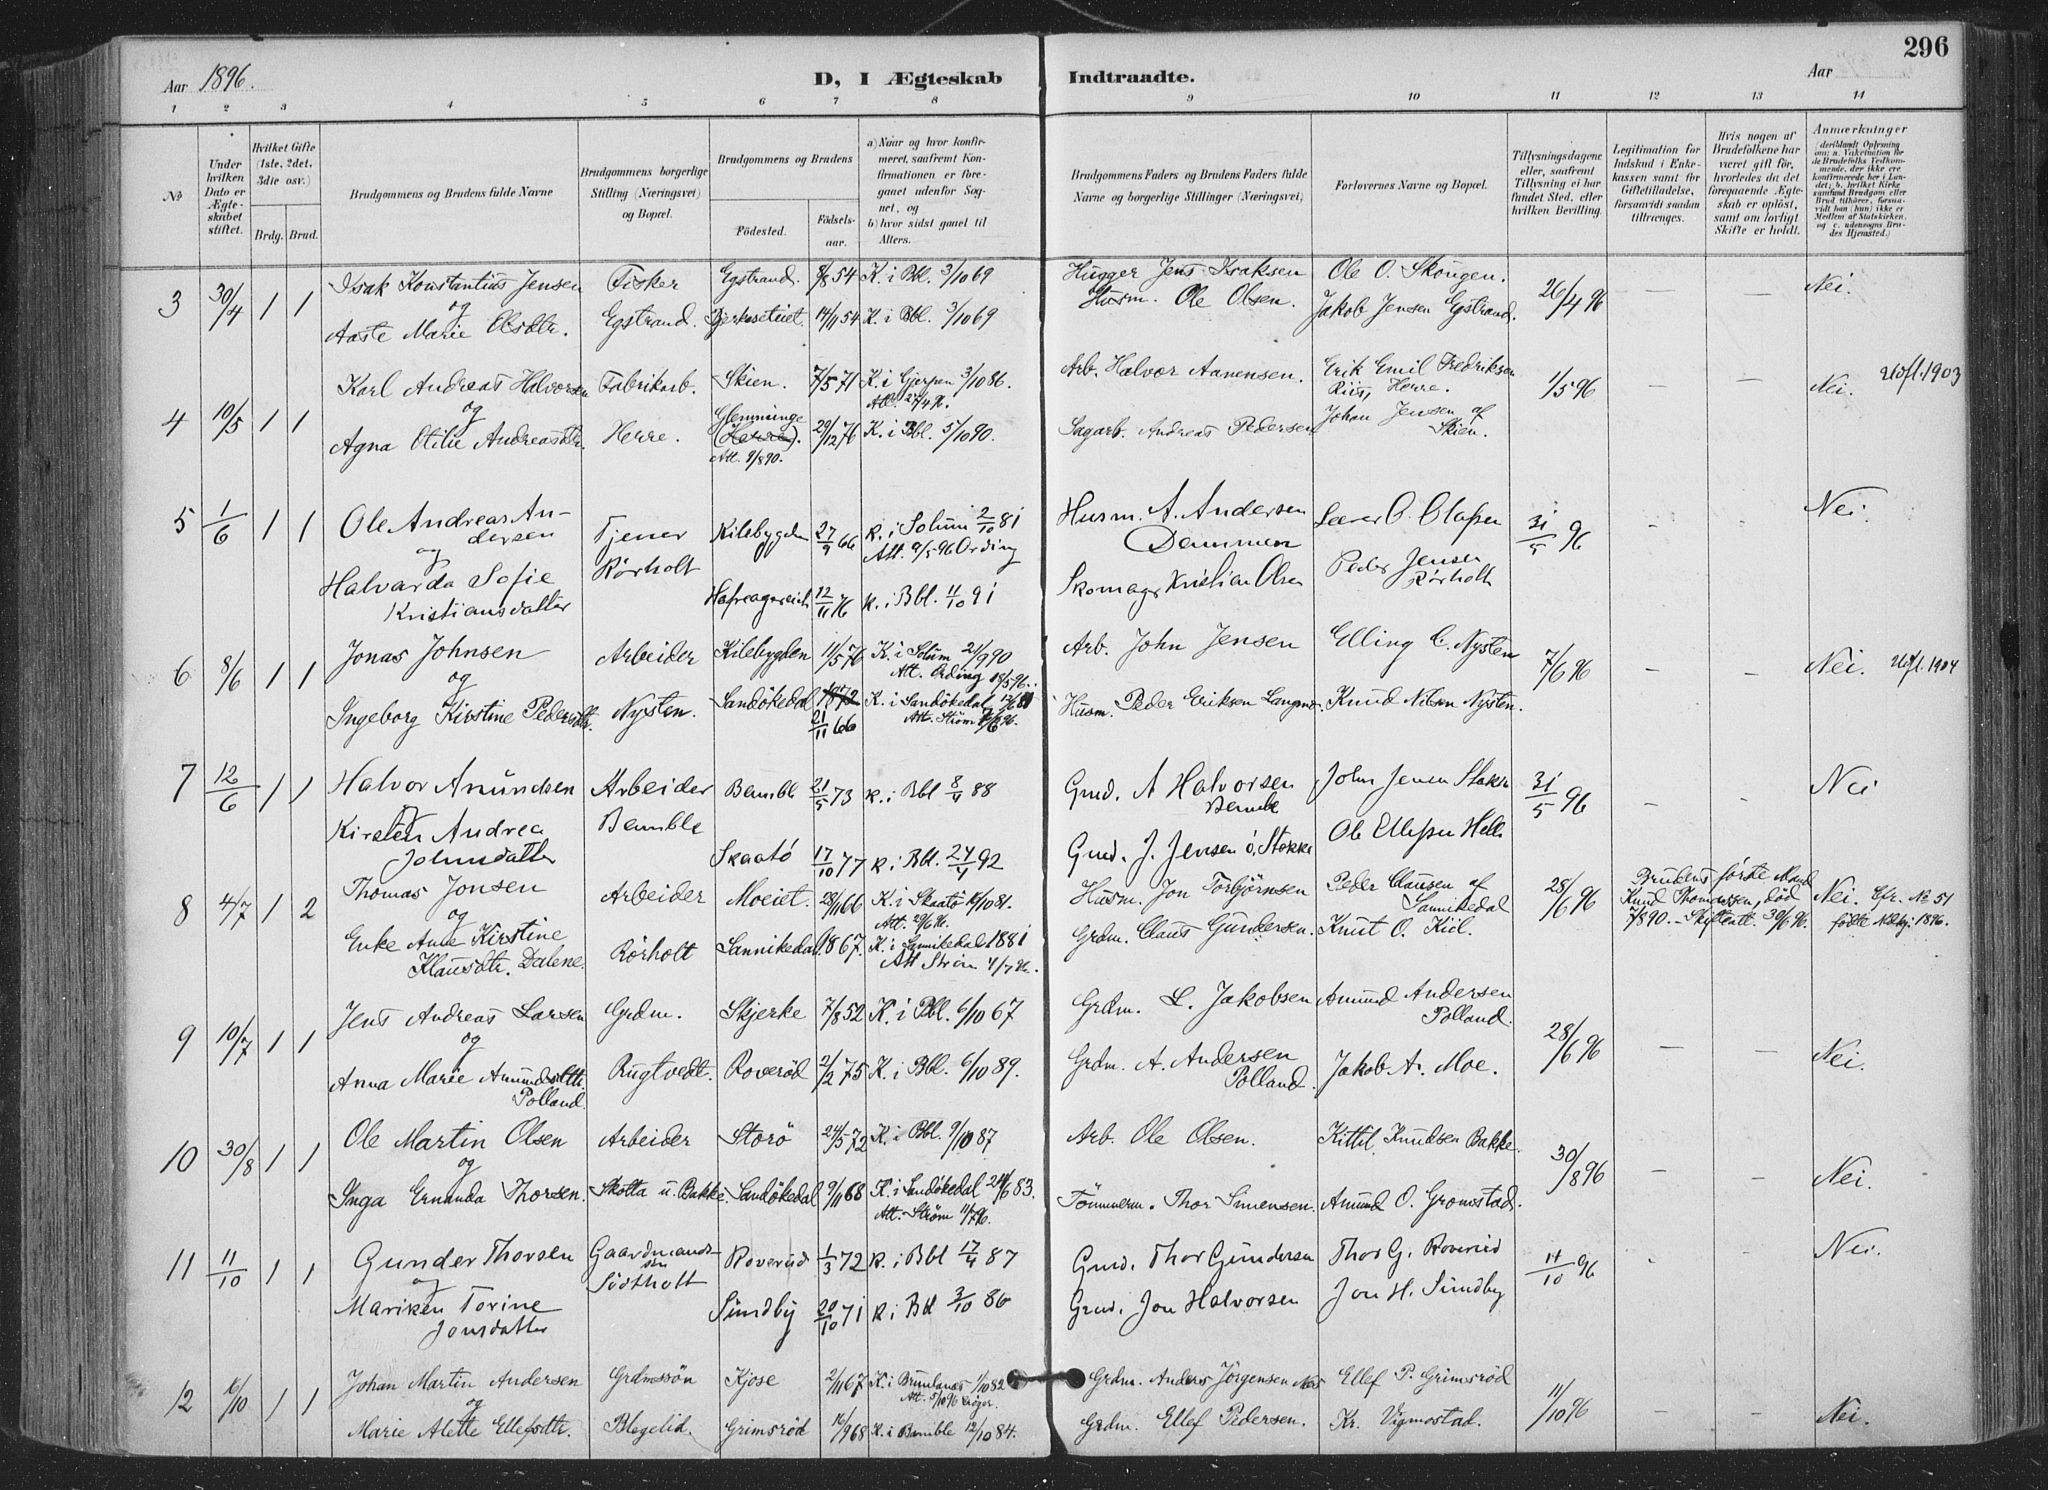 296
Aar 1896.
D, I Ægteskab Indtraadte.
Aar
1 2 3 4 5 6 7 8 9 10 11 12 13 14
No
Under hvilken Dato er Ægteskabet stiftet.
Hvilket Gifte (1ste, 2det, 3die osv.)
Brdg. Brud.
Brudgommens og Brudens fulde Navne
Brudgommens borgerlige Stilling (Næringsvei) og Bopæl.
Brudgommens og Brudens
Födested. Födselsaar.
a) Naar og hvor konfirmeret, saafremt Konfirmationen er foregaaet udenfor Sognet, og
b) hvor sidst gaaet til Alters.
Brudgommens Faders og Brudens Faders fulde Navne og borgerlige Stillinger (Næringsvei)
Forlovernes Navne og Bopæl.
Tillysningsdagene eller, saafremt Tillysning ei har fundet Sted, efter hvilken Bevilling.
Legitimation for Indskud i Enkekassen samt for Giftetilladelse, forsaavidt saadan tiltrænges.
Hvis nogen af Brudefolkene har været gift før, hvorledes da det foregaaende Ægteskab er oplöst, samt om lovligt Skifte er holdt.
Anmærkninger (deriblandt Oplysning om: a. Vakcination for de Brudefolks Vedkommende, der ikke ere konfirmerede her i Landet; b. hvilket Kirkesamfund Brudgom eller Brud tilhører, forsaavidt han (hun) ikke er Medlem af Statskirken, og c. udensogns Brudes Hjemsted.)
3 30/4 1 1 Isak Konstantius Jensen Fisker Egstrand. 8/8 54 K. i Bbl. 3/10 69 Hugger Jens Isaksen Ole O. Skougen. 26/4 96 — — Nei.
og
Aaste Marie Olsdtr. Egstrand. Bjerksetvet. 14/11 54 K. i Bbl. 3/10 69 Husm. Ole Olsen. Jakob Jensen Egstrand.
4 10/5 1 1 Karl Andreas Halvorsen Fabrikarb. Skien. 7/5 71 K. i Gjerpen 3/10 86. Att. 27/4 96. Arb. Halvor Aanensen. Erik Emil Fredriksen Riis, Herre. 1/5 96 — — Nei. Udfl. 1903
og
Agna Otilie Andreasdtr. Herre. Glemminge (Herre). Att. 9/8 90. 29/12 76 K. i Bbl. 5/10 90. Sagarb. Andreas Pedersen Johan Jensen af Skien.
5 1/6 1 1 Ole Andreas Andersen Tjener Kilebygden 27/9 66 k. i Solum 2/10 81 Att. 9/5 96 Ording Husm. A. Andersen Dammen Lærer O. Olafsen 31/5 96 - - Nei.
og
Halvarda Sofie Kristiansdatter Rörholt Hafreagereich 12/11 76 k. i Bbl. 11/10 91 Skomagr Kristian Olsen Peder Jensen Rörholt
6 8/6 1 1 Jonas Johnsen Arbeider Kilebygden 11/5 76 K. i Solum 21/9 90 Att. Ording 18/5 96. Arb. John Jensen Elling C. Nysten 7/6 96 — — Nei. Udfl. 1904
og
Ingeborg Kirstine Pedersdtr. Nysten. Sandökedal 1872 21/11 66 K. i Sandökedal 12/6 81 Att. Ström 4/6 96. Husm. Peder Eriksen Knud Nilsen Nysten.
7 12/6 1 1 Halvor Amundsen Arbeider Bamble 21/5 73 k. i Bbl 8/4 88 Grud. A Halvorsen Bamble John Jensen Stokke 31/5 96 - - Nei
og
Kirsten Andrea Johnsdatter Bamble Skaatö 17/10 77 k. i Bbl. 24/4 92 Grud. J. Jensen ö. Stokke Ole Ellefsen Helle
8 4/7 1 2 Thomas Jonsen Arbeider Moeiet. 28/11 66 K. i Skaatö 10/10 81. Att. 29/6 96. Husm. Jon Torbjörnsen Peder Clausen af Sannikedal 28/6 96 Brudens første Mand Knud Thomassen, död 7/8 90. – Skifteatt. 30/6 96. Nei. Cfr. No 51 födte Mdkj. 1896.
og
Enke Ane Kirstine Klausdtr. Dalene. Rörholt Sannikedal 1867. K. i Sannikedal 1881 Att Ström 4/7 96. Grdm. Claus Gundersen. Knut O. Kiil.
9 10/7 1 1 Jens Andreas Larsen Grdm. Skjerke 7/8 52 K. i Bbl. 6/10 67 Grdm. L. Jakobsen Amund Andersen Polland. 28/6 96 — — Nei.
og
Anna Marie Amundsdtr. Polland. Rugtvedt. Roveröd 2/2 75 K. i Bbl. 6/10 89. Grdm. A. Andersen Polland. Jakob A. Moe.
10 30/8 1 1 Ole Martin Olsen Arbeider Storö 24/5 72 K. i Bbl. 9/10 87 Arb. Ole Olsen. Kittil Knudsen Bakke. 30/8 96 — — Nei.
og
Inga Ernanda Thorsen. Skotta u. Bakke. Sandökedal 9/11 68 K. i Sandökedal 24/6 83. Att. Ström 11/7 96. Tömmerm. Thor Simensen. Amund O. Gromstad.
11 11/10 1 1 Gunder Thorsen Gaardmandssön Roveröd 1/3 72 k. i Bbl 17/4 87 Grud. Thor Gundersen Thor G. Roveröd 11/10 96 - - Nei.
og
Mariken Torine Jonsdatter Södtholt Sundby 20/10 71 k. i Bbl 3/10 86 Grud. Jon Halvorsen Jon H. Sundby
12 16/10 1 1 Johan Martin Andersen Grdmssön Kjose 2/11 67 K. i Brunlanæs 1/10 82 Att. 5/10 96 Kröger. Grdm. Anders Jörgensen Næs Ellef P. Grimsröd 11/10 96 — — Nei.
og
Marie Alette Ellefsdtr. Blegelid. Grimsröd 16/9 68 K. i Bamble 12/10 84. Grdm. Ellef Pedersen. Kr. Vigmostad.